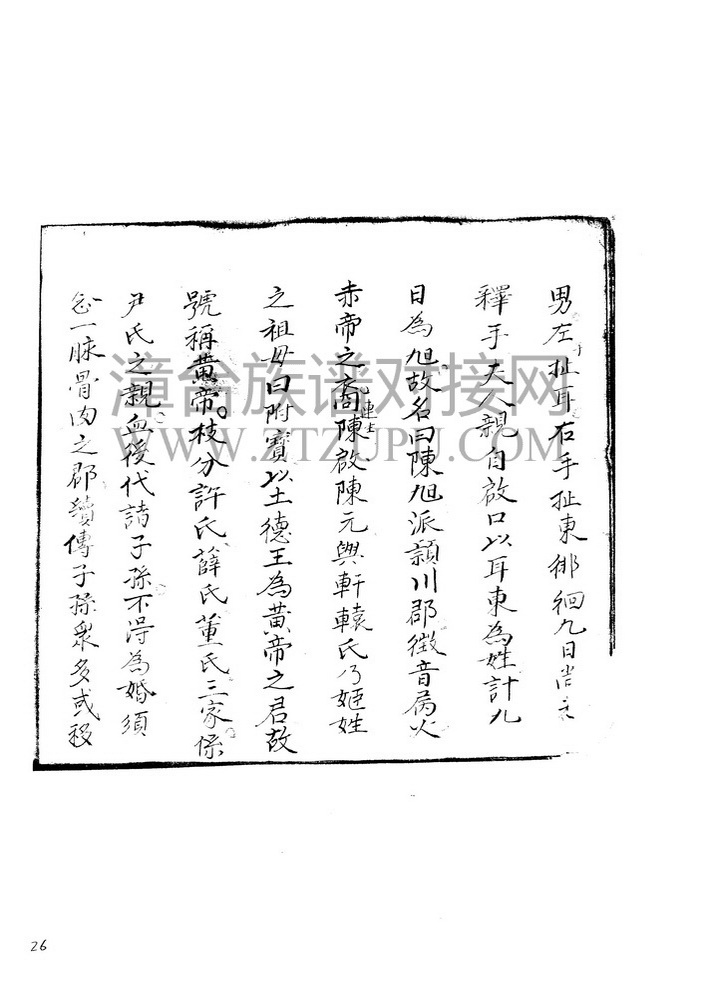 男左扯耳右手扯東徘徊九日尚未
釋手夫人親自啟口以耳東為姓計九
日為旭故名曰陳旭派潁川郡徵音屬火
赤帝之裔陳啟陳元與軒轅氏乃姬姓
之祖母曰附寶以土德王為黃帝之君故
號稱黃帝枝分許氏薛氏董氏三家係
尹氏之親血後代諸子孫不淂為婚須
念一脉骨肉之郡續傳子孫眾多或移
漳台族谱对接网
WWW.ZTZUPU.COM
26